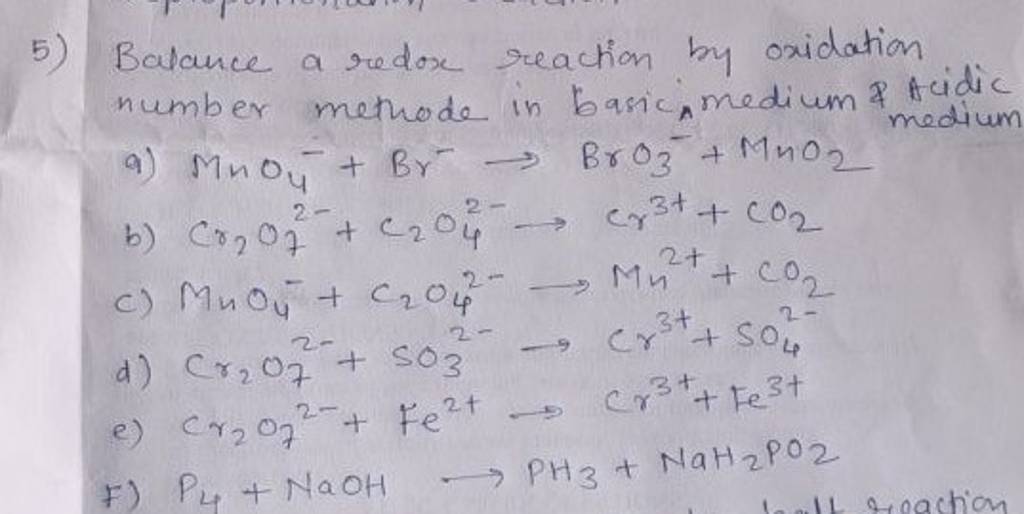 5) Balance a redox reaction by oxidation
number methode in basic ^ medium & Acidic
medium
a) MnO₄⁻ + Br⁻ → BrO₃⁻ + MnO₂
b) Cr₂O₇²⁻ + C₂O₄²⁻ → Cr³⁺ + CO₂
c) MnO₄⁻ + C₂O₄²⁻ → Mn²⁺ + CO₂
d) Cr₂O₇²⁻ + SO₃²⁻ → Cr³⁺ + SO₄²⁻
e) Cr₂O₇²⁻ + Fe²⁺ → Cr³⁺ + Fe³⁺
F) P₄ + NaOH → PH₃ + NaH₂PO₂
half reaction